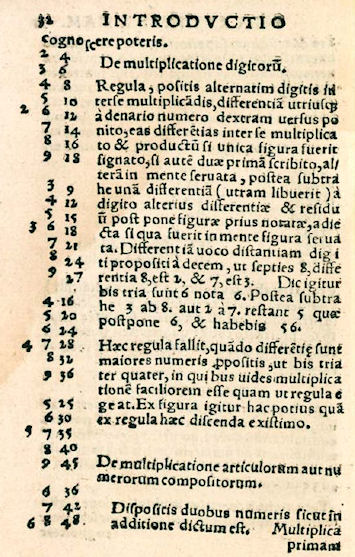 32 INTRODVCTIO
cognoscere poteris.
2 4
De multiplicatione digitorũ.
3 6
4 8 Regula, positis alternatim digitis in
5 10 terse multiplicãdis, differentiã utriusq;
2 6 12 à denario numero dextram uersus po
7 14 nito, eas differẽtias inter se multiplica
8 16 to & productũ si unica figura fuerit
9 18 signato, si autẽ duæ primã scribito, al/
terã in mente seruata, postea subtra
3 9 he unã differentiã (utram libuerit) à
4 12 digito alterius differentiæ & residu
5 15 ũ post pone figuræ prius notatæ, adie
3 6 18 cta si qua fuerit in mente figura serua
7 21 ta. Differentiã uoco distantiam digi
8 24 ti propositi à decem, ut septies 8, diffe
9 27 rentia 8, est 2, & 7, est 3. Dic igitur
bis tria sunt 6 nota 6. Postea subtra
4 16 he 3 ab 8. aut 2 à 7. restant 5 quæ
5 20 postpone 6, & habebis 56.
6 24
4 7 28 Hæc regula fallit, quãdo differẽtię sunt
8 32 maiores numeris ppositis, ut bis tria
9 36 ter quater, in quibus uides multiplica
tionẽ faciliorem esse quam ut regula e
5 25 ge at. Ex figura igitur hac potius quã
6 30 ex regula hæc discenda existimo.
5 7 35
8 40
9 45 De multiplicatione articulorum aut nu
merorum compositorum.
6 36
7 42 Dispositis duobus numeris sicut in
6 8 48 additione dictum est. Multiplica
primam